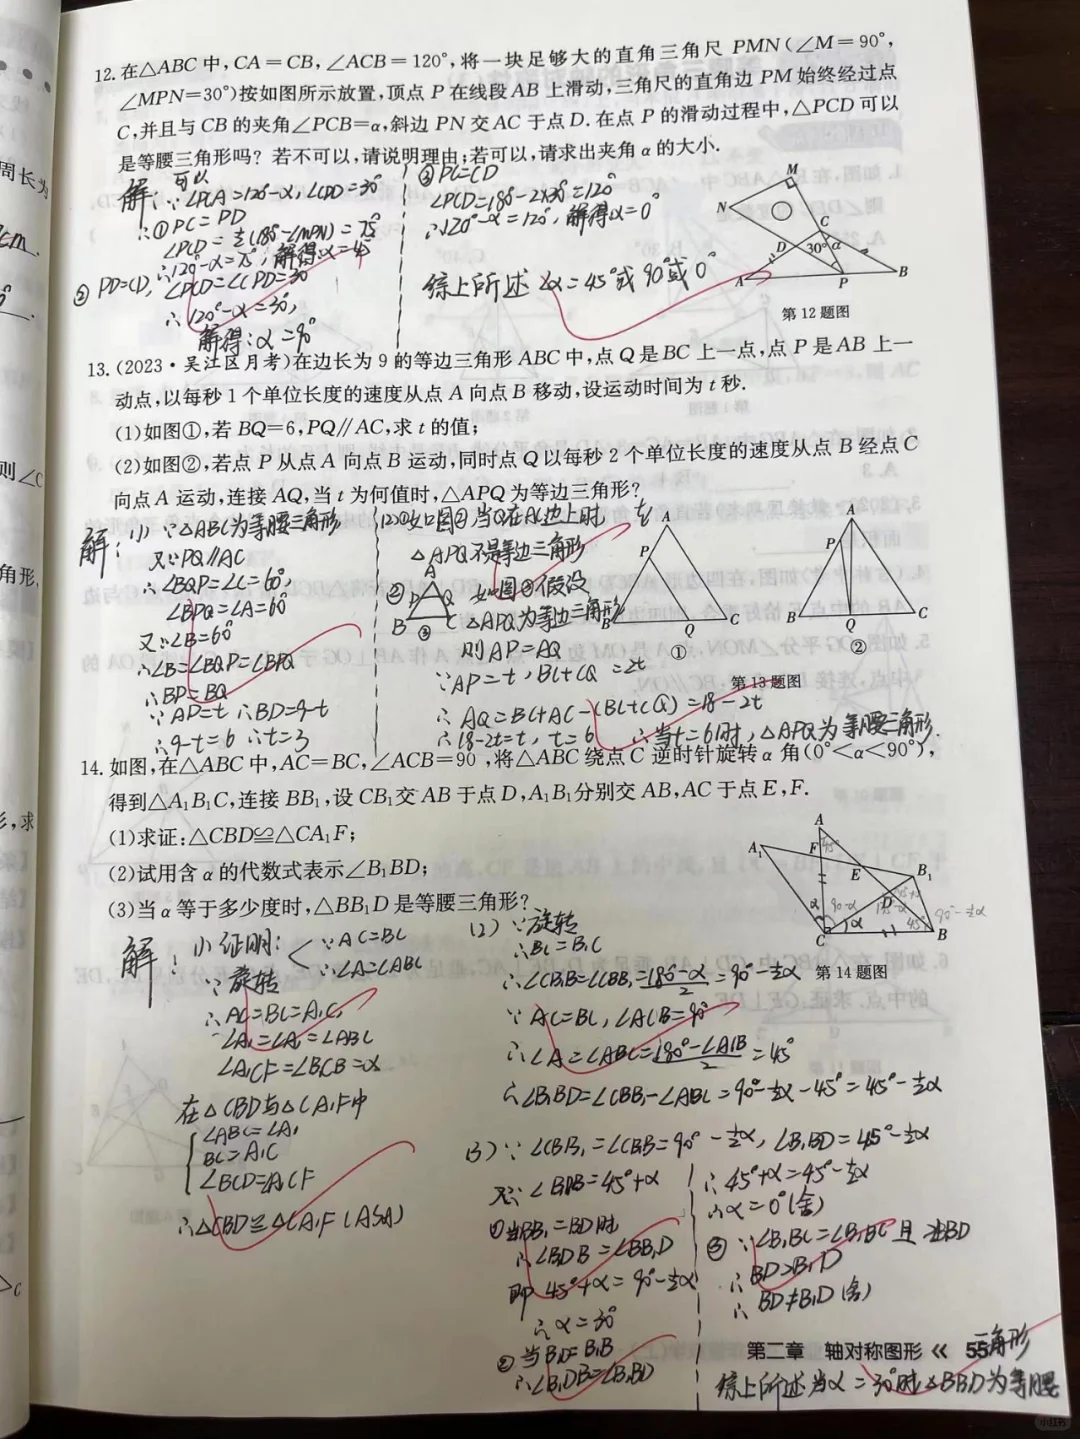 12. 在△ABC 中, CA=CB, ∠ACB=120°, 将一块足够大的直角三角尺 PMN(∠M=90°,
∠MPN=30°)按如图所示放置, 顶点 P 在线段 AB 上滑动, 三角尺的直角边 PM 始终经过点
C, 并且与 CB 的夹角∠PCB=α, 斜边 PN 交 AC 于点 D. 在点 P 的滑动过程中, △PCD 可以
是等腰三角形吗? 若不可以, 请说明理由; 若可以, 请求出夹角 α 的大小.
解: 可以
∵∠PCA=120°-α, ∠CPD=30°
∴①PC=PD
∠PCD=½(180°-∠MPN)=75°
∴120°-α=75°, 解得α=45°
② PD=CD, ∠PCD=∠CPD=30°
∴120°-α=30°,
解得: α=90°
③PC=CD
∠PCD=180°-2×30°=120°
∴120°-α=120°, 解得α=0°
综上所述 α=45°或90°或0°
M
N
C
D
30°
α
A
P
B
第 12 题图
13. (2023·吴江区月考)在边长为 9 的等边三角形 ABC 中, 点 Q 是 BC 上一点, 点 P 是 AB 上一
动点, 以每秒 1 个单位长度的速度从点 A 向点 B 移动, 设运动时间为 t 秒.
(1)如图①, 若 BQ=6, PQ∥AC, 求 t 的值;
(2)如图②, 若点 P 从点 A 向点 B 运动, 同时点 Q 以每秒 2 个单位长度的速度从点 B 经点 C
向点 A 运动, 连接 AQ, 当 t 为何值时, △APQ 为等边三角形?
解: (1) ∵△ABC为等腰三角形
又∵PQ∥AC
∴∠BQP=∠C=60°,
∠BPQ=∠A=60°
又∵∠B=60°
∴∠B=∠BQP=∠BPQ
∴BP=BQ
∵AP=t ∴BD=9-t
∴9-t=6 ∴t=3
△APQ不是等边三角形
② 如图③假设
△APQ为等边三角形
则AP=AQ
∵AP=t, BC+CQ=2t
∴AQ=BC+AC-(BC+CQ)=18-2t
∴18-2t=t, t=6 ∴当t=6时, △APQ为等腰三角形.
A
P
Q
B
C
③
A
P
B
Q
C
①
A
P
B
Q
C
②
第 13 题图
14. 如图, 在△ABC 中, AC=BC, ∠ACB=90°, 将△ABC 绕点 C 逆时针旋转 α 角(0°<α<90°),
得到△A₁B₁C, 连接 BB₁, 设 CB₁交 AB 于点 D, A₁B₁分别交 AB, AC 于点 E, F.
(1)求证: △CBD≌△CA₁F;
(2)试用含 α 的代数式表示∠B₁BD;
(3)当 α 等于多少度时, △BB₁D 是等腰三角形?
A
A₁
F
45°
E
B₁
D
α
90-α
α
45°
90°-½α
C
B
第 14 题图
解: (1) 证明: ∵AC=BC
∴∠A=∠ABC
∵旋转
∴AC=BC=A₁C,
∠A₁=∠A=∠ABC
∠A₁CF=∠BCB=α
在△CBD与△CA₁F中
∠ABC=∠A₁
BC=A₁C
∠BCD=A₁CF
∴△CBD≌△CA₁F(ASA)
(2) ∵旋转
∴BC=B₁C
∴∠CB₁B=∠CBB₁=(180°-α)/2=90°-½α
∵AC=BC, ∠ACB=90°
∴∠A=∠ABC=(180°-∠ACB)/2=45°
∴∠B₁BD=∠CBB₁-∠ABC=90°-½α-45°=45°-½α
(3) ∵∠CBB₁=∠CB₁B=90°-½α, ∠B₁BD=45°-½α
∠B₁DB=45°+α
①当BB₁=BD时
∴∠BDB=∠BB₁D
即 45°+α=90°-½α
∴α=30°
②当B₁D=B₁B
∴∠B₁DB=∠B₁BD
∴45°+α=45°-½α
∴α=0°(舍)
③ ∵∠B₁BC=∠B₁BC 且
∴BD>B₁D
∴BD≠B₁D(舍)
第二章 轴对称图形 « 55
三角形
综上所述当α=30°时△BB₁D为等腰
小红书